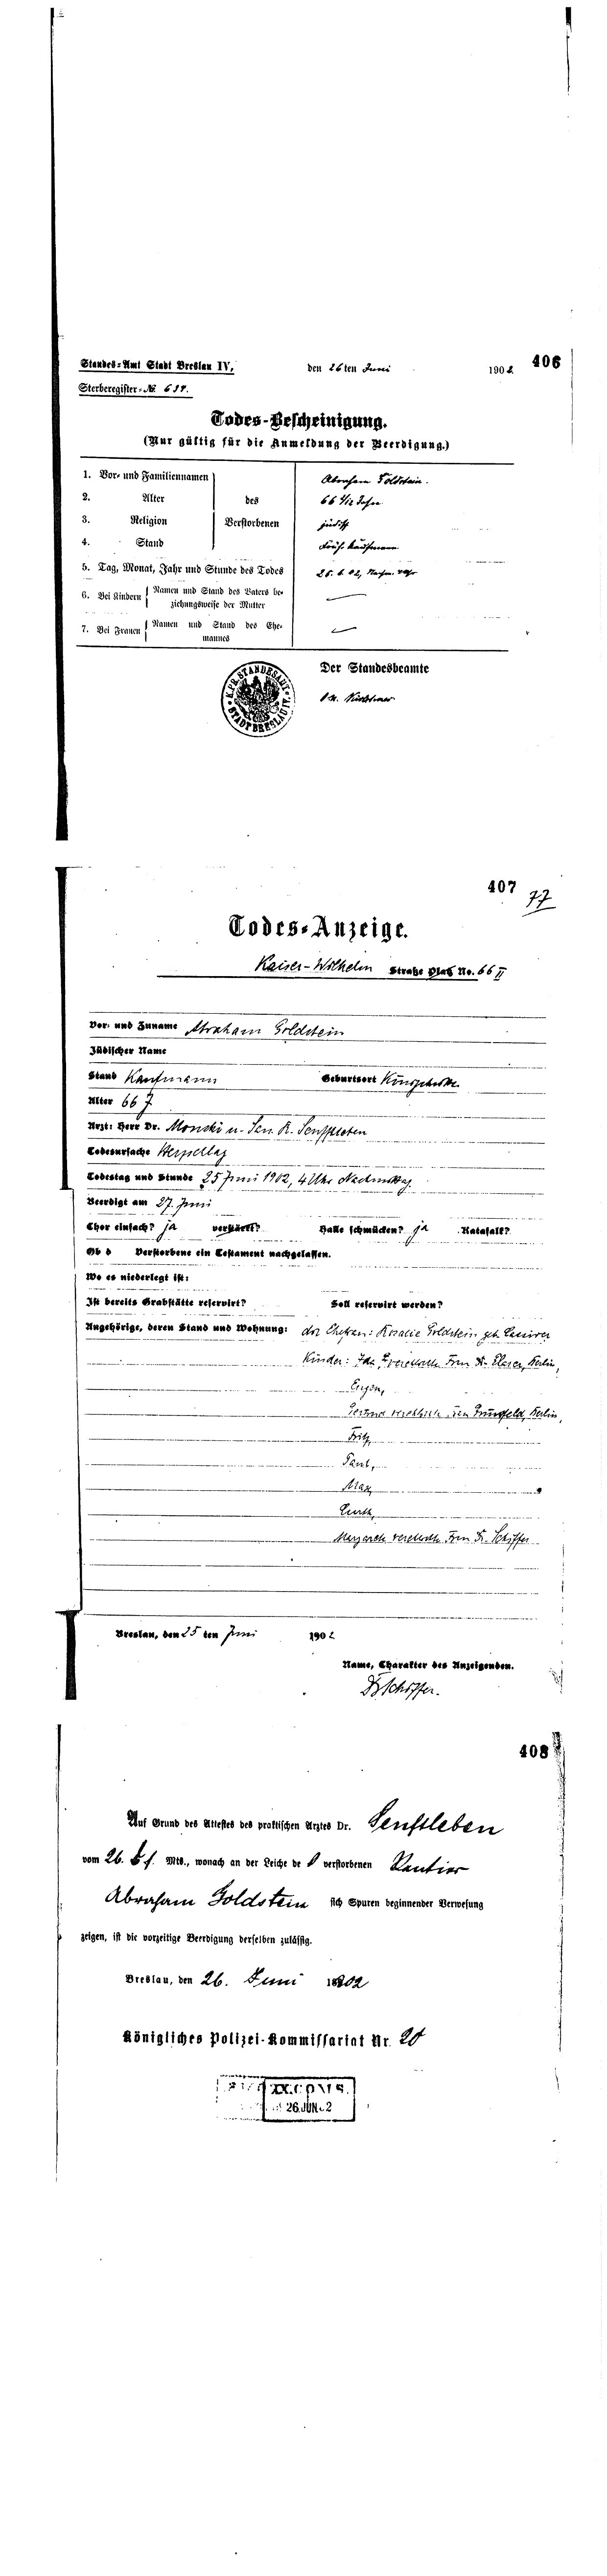 406
Standes-Amt Stadt Breslau IV, den 26ten Juni 1902
Sterberegister-№
Todes-Bescheinigung.
(Nur gültig für die Anmeldung der Beerdigung.)
1. Vor- und Familiennamen Abraham Goldstein.
2. Alter des 66
3. Religion Verstorbenen jüdisch
4. Stand früh. Kaufmann
5. Tag, Monat, Jahr und Stunde des Todes 25. 6. 02, Nachm. 4 Uhr
6. Bei Kindern Namen und Stand des Vaters be-
ziehungsweise der Mutter
7. Bei Frauen Namen und Stand des Ehe-
mannes
Der Standesbeamte
K.PR.STANDESAMT
STADT BRESLAU IV.
407
77
Todes-Anzeige.
Kaiser-Wilhelm Straße Platz No. 66 II
Vor- und Zuname Abraham Goldstein
Jüdischer Name
Stand Kaufmann Geburtsort
Alter 66 J
Arzt: Herr Dr. Monski u. San. R. Senftleben
Todesursache Herzschlag
Todestag und Stunde 25 Juni 1902, 4 Uhr Nachmittag
Beerdigt am 27. Juni
Chor einfach? ja verstärkt? Halle schmücken? ja Katafalk?
Ob d Verstorbene ein Testament nachgelassen.
Wo es niederlegt ist:
Ist bereits Grabstätte reservirt? Soll reservirt werden?
Angehörige, deren Stand und Wohnung: die Ehefrau: Rosalie Goldstein geb.
Kinder: Ida, verehelichte Frau Dr. Elsner, Berlin,
Eugen,
Gertrud verehelichte Frau Grünfeld, Berlin,
Fritz,
Paul,
Max,
Curth,
Margarethe verehelichte Frau Dr. Schiffer
Breslau, den 25 ten Juni 1902
Name, Charakter des Anzeigenden.
Dr Schiffer.
408
Auf Grund des Attestes des praktischen Arztes Dr. Senftleben
vom 26. Mts., wonach an der Leiche de verstorbenen Rentier
Abraham Goldstein sich Spuren beginnender Verwesung
zeigen, ist die vorzeitige Beerdigung derselben zulässig.
Breslau, den 26. Juni 1902
Königliches Polizei-Kommissariat Nr. 20
XX.COMS.
26.JUN.02